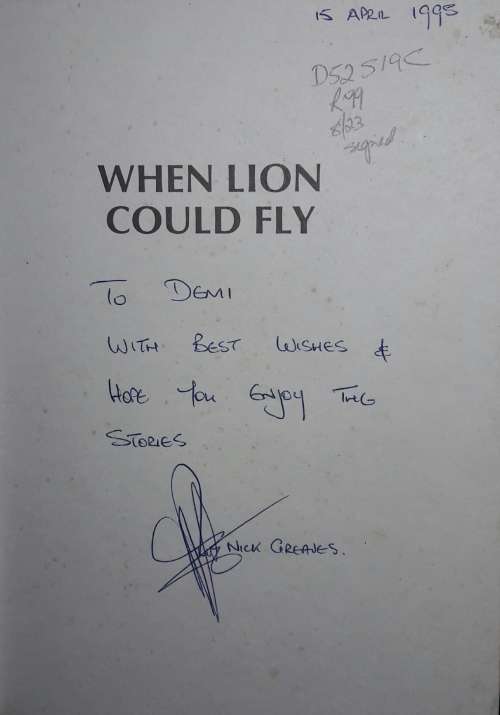 15 APRIL 1995
D52519C
R99
8/23
signed
WHEN LION
COULD FLY
TO DEMI
WITH BEST WISHES &
HOPE YOU ENJOY THE
STORIES
NICK GREAVES.